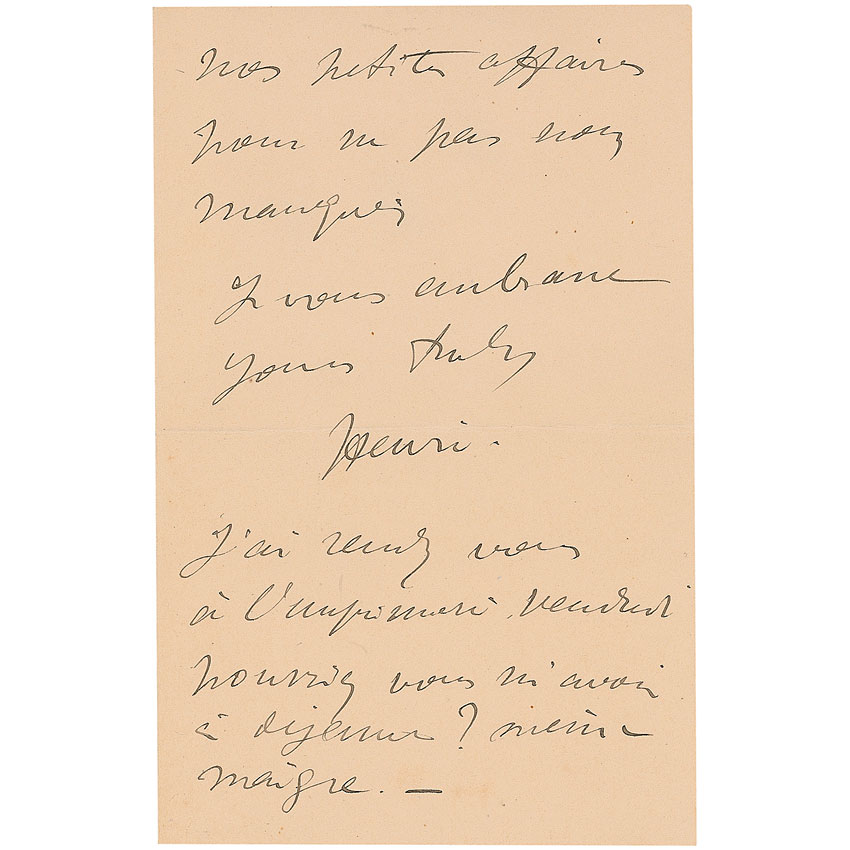 nos petites affaires
pour ne pas nous
manquer
Je vous embrasse
Yours truly
Henri.
J'ai rendez vous
à l'imprimerie vendredi
pourriez vous m'avoir
à déjeuner? même
maigre. —